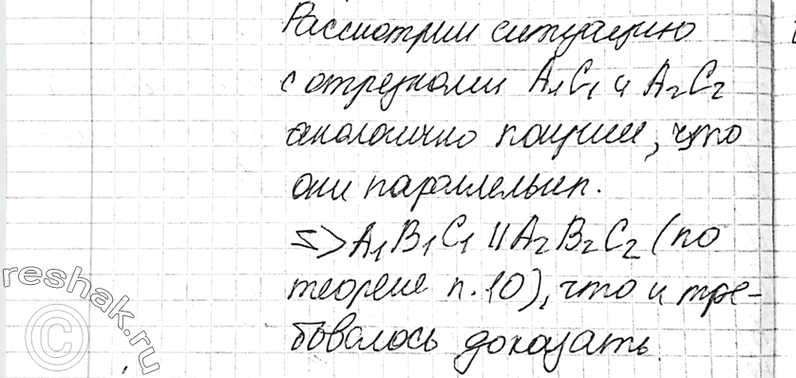 Рассмотрим ситуацию
с отрезками A₁C₁ и A₂C₂
аналогично получим, что
они параллельн.
=> A₁B₁C₁ || A₂B₂C₂ (по
теореме п.10), что и тре-
бовалось доказать.
reshak.ru